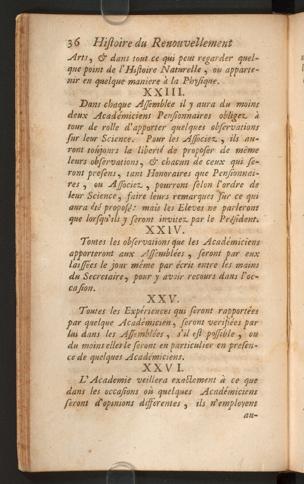 36 Histoire du Renouvellement
Arts, & dans tout ce qui peut regarder quel-
que point de l'Histoire Naturelle, ou apparte-
nir en quelque maniere à la Physique.
XXIII.
Dans chaque Assemblée il y aura du moins
deux Académiciens Pensionnaires obligez à
tour de rolle d'apporter quelques observations
sur leur Science. Pour les Associez, ils au-
ront toûjours la liberté de proposer de même
leurs observations, & chacun de ceux qui se-
ront presens, tant Honoraires que Pensionnai-
res, ou Associez, pourront selon l'ordre de
leur Science, faire leurs remarques sur ce qui
aura été proposé: mais les Eleves ne parleront
que lorsqu'ils y seront invitez par le Président.
XXIV.
Toutes les observations que les Académiciens
apporteront aux Assemblées, seront par eux
laissées le jour même par écrit entre les mains
du Secretaire, pour y avoir recours dans l'oc-
casion.
XXV.
Toutes les Expériences qui seront rapportées
par quelque Académicien, seront verifiées par
lui dans les Assemblées, s'il est possible, ou
du moins elles le seront en particulier en presen-
ce de quelques Académiciens.
XXVI.
L'Academie veillera exactement à ce que
dans les occasions où quelques Académiciens
seront d'opinions differentes, ils n'employent
au-